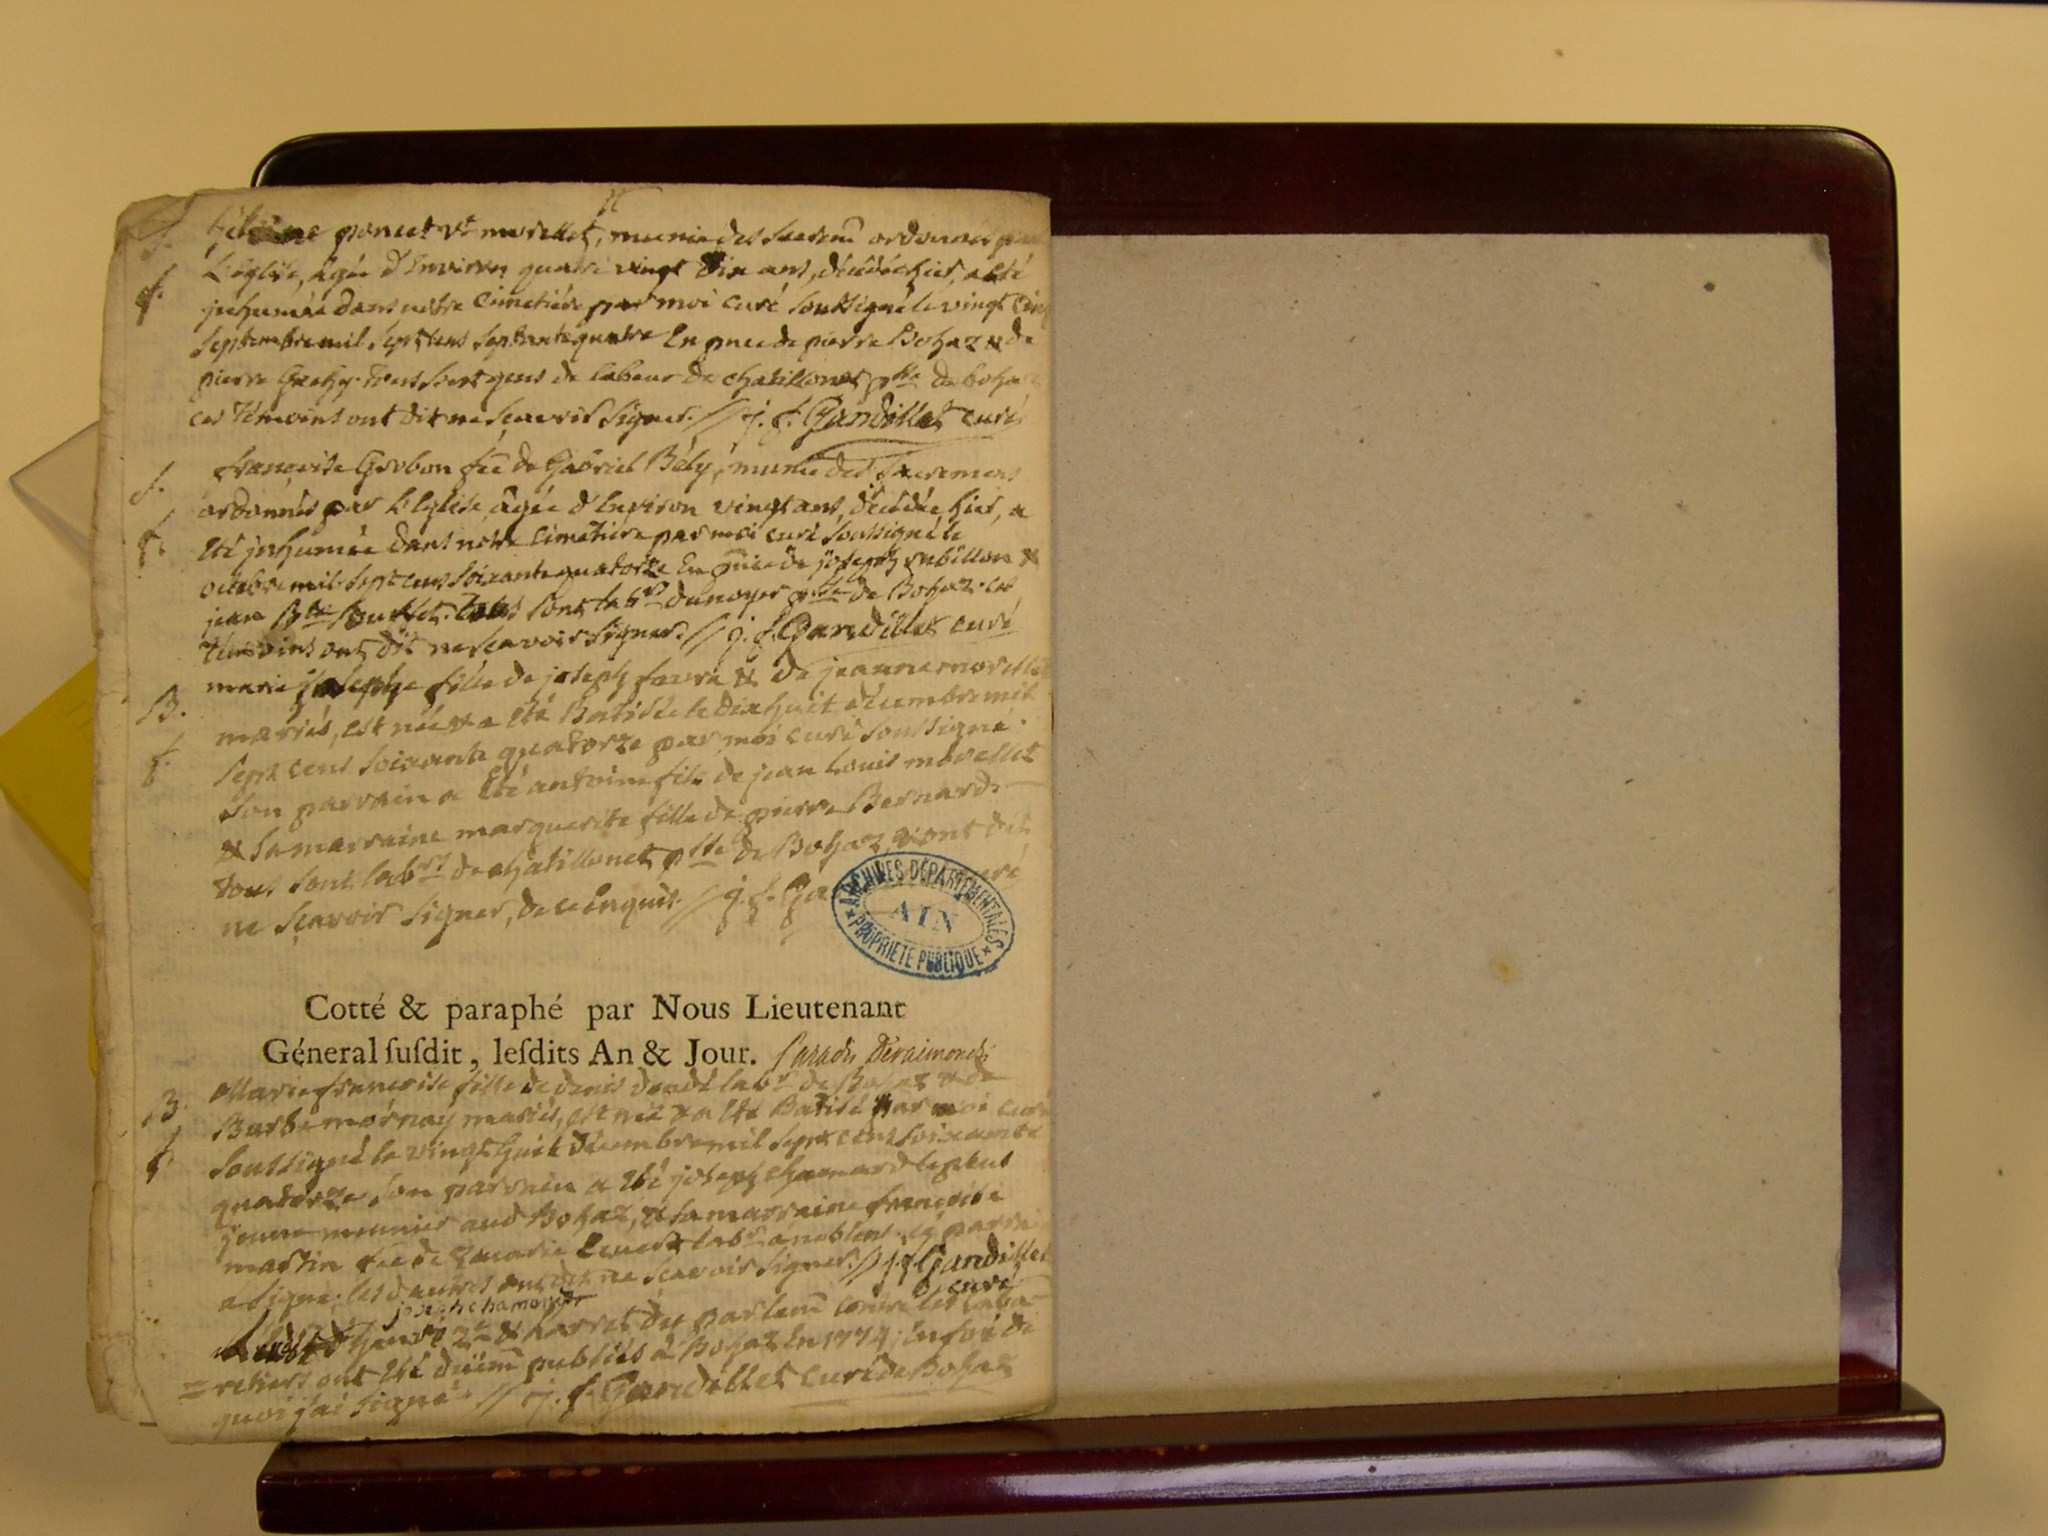 poncet Ve morellet, munie des sacrem ordonnés par
L'église, âgée d'environ quatre vingt dix ans, décédée hier, a été
f. jnhumée dans notre cimetière par moi curé soussigné le vingt cinq
septembre mil sept cens septante quatre En pnce de pierre Bohaz & de
pierre tous sont gens de labeur de chatillonet pße de bohaz
ces témoins ont dit ne sçavoir signer. // j. f. Gandillet curé
S. françoise Grobon fẽe de Gabriel Bély, munie des sacremens
ordonnés par L'Eglise, âgée d'Environ vingt ans, décédée hier, a
f. été jnhumée dans notre cimetière par moi curé soussigné le
octobre mil sept cens soixante quatorze En pnce de joseph rubillon &
jean Bte tous sont labrs du noyer pße de Bohaz. ces
témoins ont dit ne sçavoir signer. // j. f. Gandillet curé
B. marie josephe fille de joseph favre & de jeanne morellet
mariés, est née & a été Batisée le dix huit décembre mil
f. sept cens soixante quatorze par moi curé soussigné.
son parrain a été antoine fils de jean Louis morellet
& sa marraine marguerite fille de pierre Bernard.
tous sont labrs de chatillonet pße de Bohaz, & ont dit
ne sçavoir signer, de ce Enquis. // j. f. Ga curé
ARCHIVES DÉPARTEMENTALES
AIN
PROPRIETE PUBLIQUE
Cotté & paraphé par Nous Lieutenant
Géneral ſuſdit, leſdits An & Jour.
B. Marie françoise fille de denis labr de Bohaz & de
Barbe mornay mariés, est née & a été Batisé par moi curé
f. soussigné le vingt huit décembre mil sept cens soixante
quatorze son parrain a été joseph chamard le plus
jeune meunier aud Bohaz, & sa marraine françoise
martin fẽe de labr à noblens. le parrain
a signé. les d'autres ont dit ne sçavoir signer. // j. f. Gandillet
joseph chamard curé
d'henri 2e & l'arret du parlem contre les caba
= retiers ont été düem publiés à Bohaz En 1774; En foi de
quoi j'ai signé // j. f. Gandillet curé de Bohaz